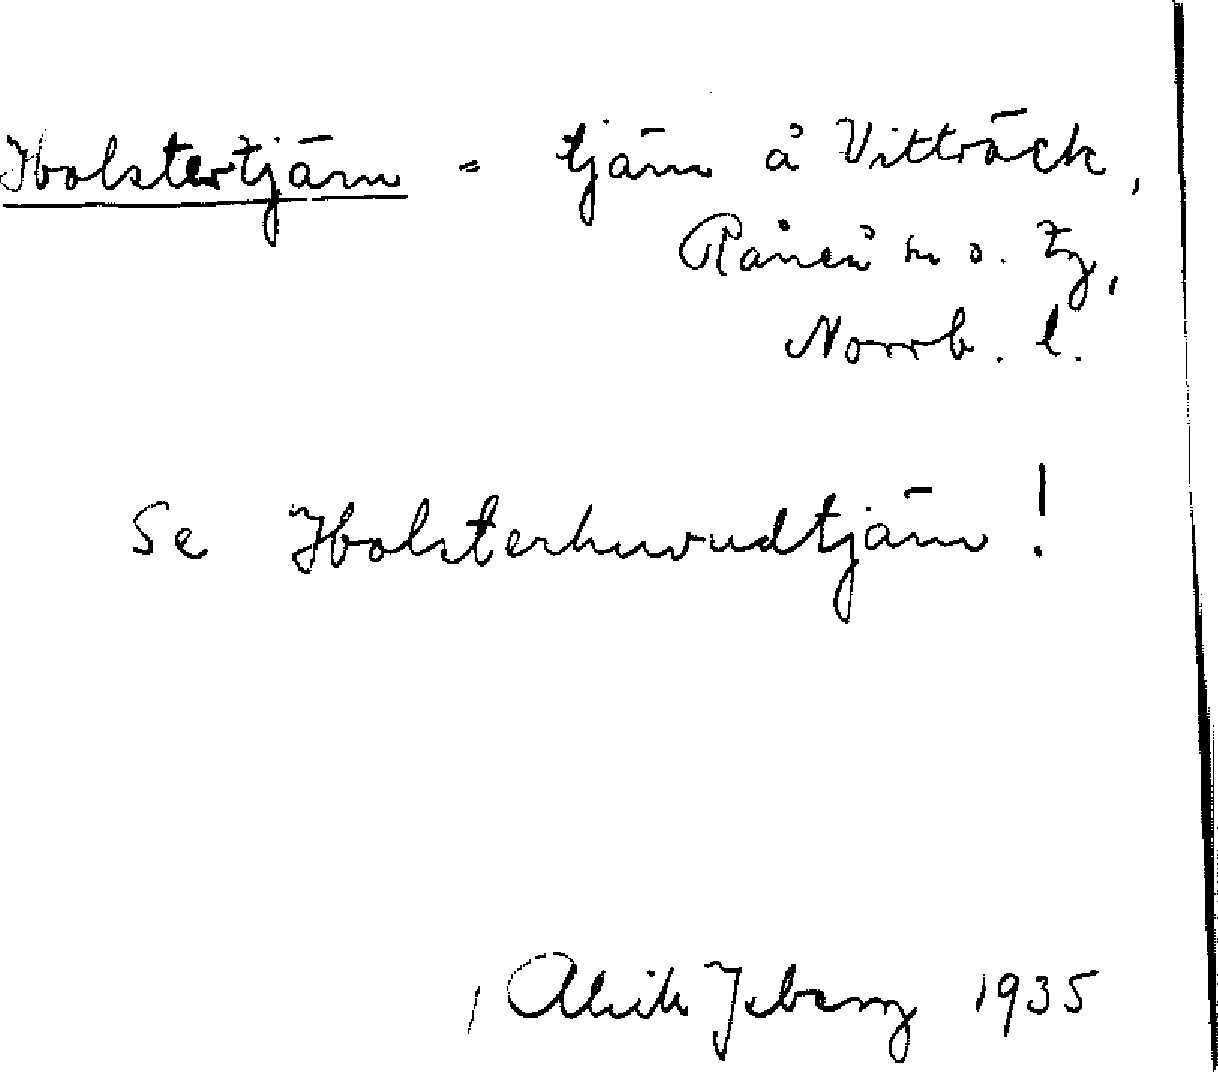 Holstertjärn = tjärn å Vitträsk,
Råneå sn o. tg,
Norrb. l.
Se Holsterhuvudtjärn!
1935